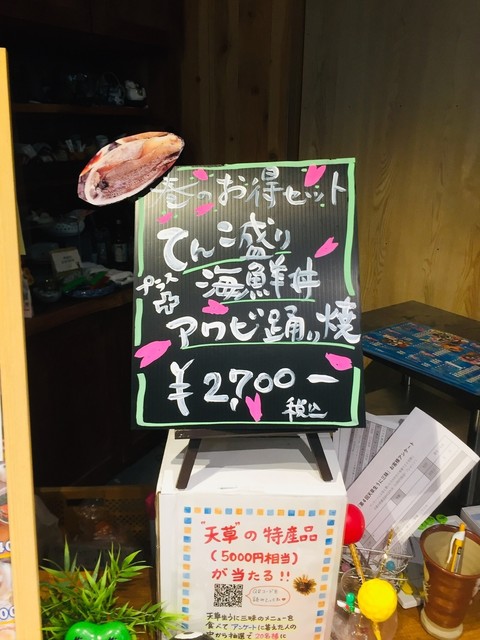 春のお得セット
てんこ盛り
海鮮丼
プラス
アワビ踊り焼
¥2,700ー
税込
"天草"の特産品
(5000円相当)
が当たる!!
天草生うに三昧のメニューを
食べてアンケートに答えた人の
中から抽選で20名様に